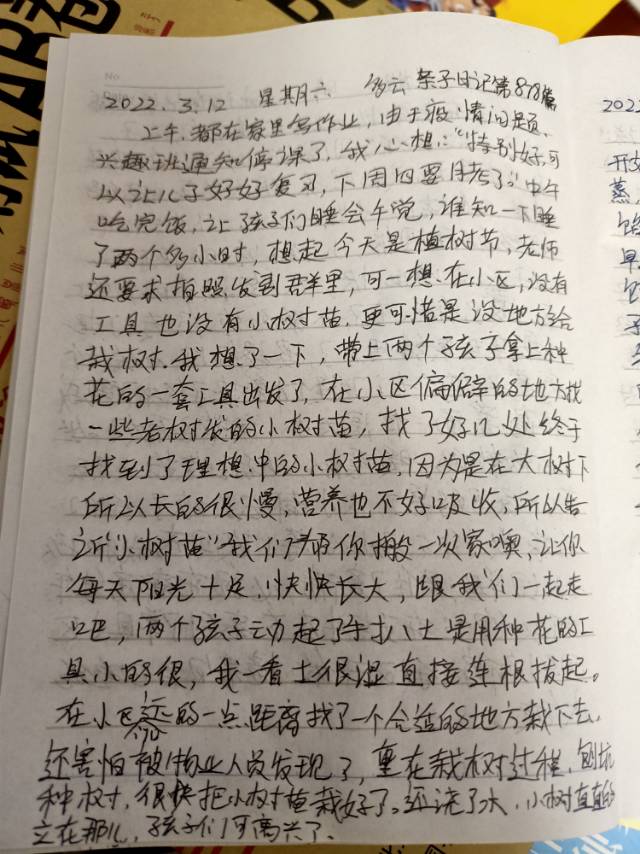 2022.3.12 星期六 多云 亲子日记第878篇
上午都在家里写作业，由于疫情问题，
兴趣班通知停课了，我心想："特别好，可
以让儿子好好复习，下周四要月考了。"中午
吃完饭，让孩子们睡会午觉，谁知一下睡
了两个多小时，想起今天是植树节，老师
还要求拍照发到群里，可一想在小区，没有
工具也没有小树苗，更可惜是没地方给
栽树。我想了一下，带上两个孩子拿上种
花的一套工具出发了，在小区偏僻的地方找
一些老树发的小树苗，找了好几处终于
找到了理想中的小树苗，因为是在大树下
所以长的很慢，营养也不好吸收，所以告
诉"小树苗"我们帮你搬一次家噢，让你
每天阳光十足，快快长大，跟我们一起走
吧，两个孩子动起了手扒土是用种花的工
具小的很，我一看土很湿直接连根拔起。
在小区远的一点距离找了一个合适的地方栽下去，
还害怕被物业人员发现了，重在栽树过程，刨坑
种树，很快把小树苗栽好了。还浇了水，小树直直的
立在那儿，孩子们可高兴了。
2022
开
蒸，
早